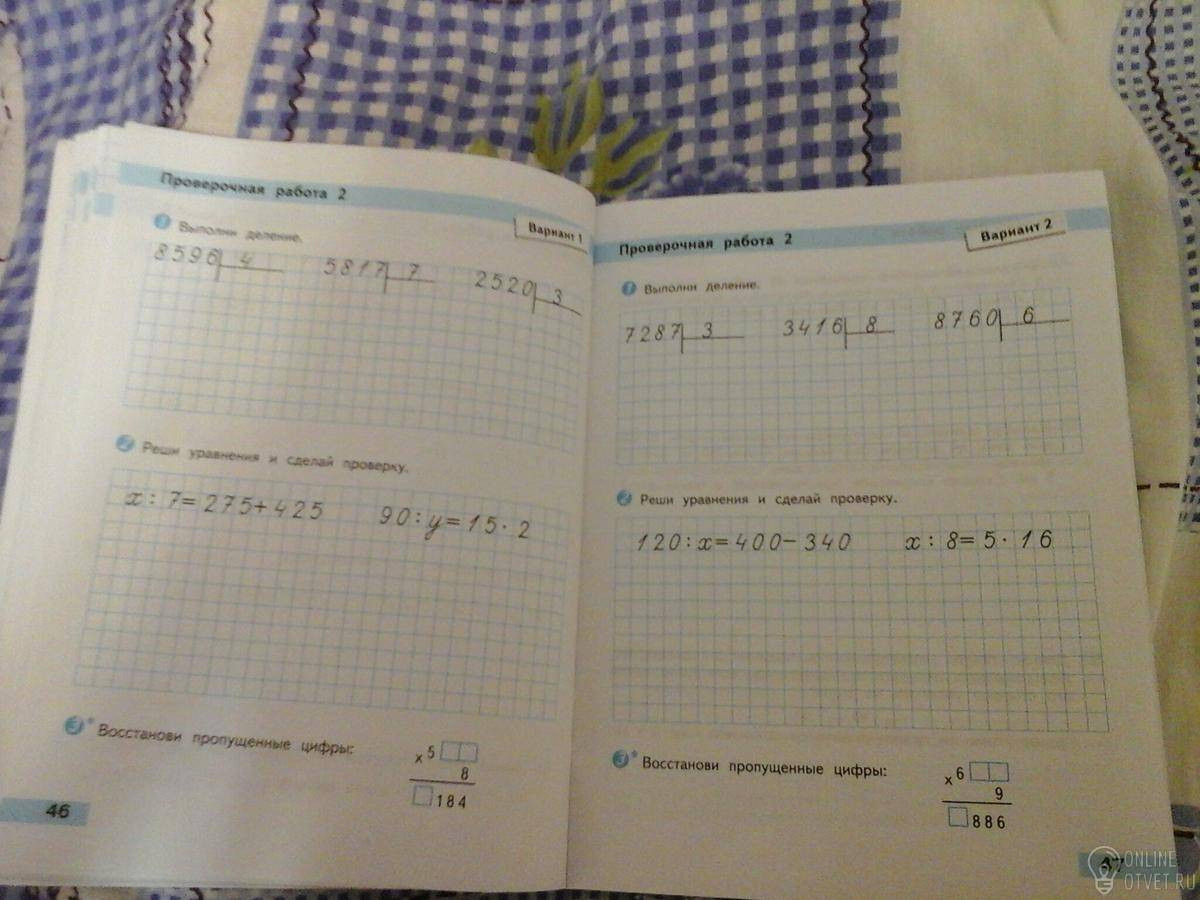 Проверочная работа 2
Вариант 1
1 Выполни деление.
8596 4 5817 7 2520 3
2 Реши уравнения и сделай проверку.
x : 7 = 275 + 425 90 : y = 15 · 2
3* Восстанови пропущенные цифры:
× 5
8
184
46
Проверочная работа 2
Вариант 2
1 Выполни деление.
7287 3 3416 8 8760 6
2 Реши уравнения и сделай проверку.
120 : x = 400 − 340 x : 8 = 5 · 16
3* Восстанови пропущенные цифры:
× 6
9
886
ONLINE
OTVET.RU